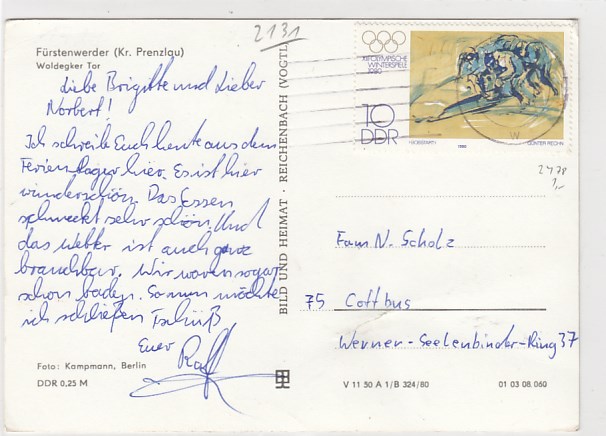 2131
Fürstenwerder (Kr. Prenzlau)
Woldegker Tor
Liebe Brigitte und Lieber
Norbert!
Ich schreibe Euch heute aus dem
Ferienlager hier. Es ist hier
wunderschön. Das Essen
schmeckt sehr schön. Und
das Wetter ist auch ganz
brauchbar. Wir waren sogar
schon baden. So nun möchte
ich schließen Tschüß
Euer Ralf
Foto: Kampmann, Berlin
DDR 0,25 M
BILD UND HEIMAT · REICHENBACH (VOGTL
XIII. OLYMPISCHE
WINTERSPIELE
1980
10
DDR
1980
2478
1,-
Fam. N. Scholz
75 Cottbus
Werner-Seelenbinder-Ring 37
V 11 50 A 1/B 324/80
01 03 08 060